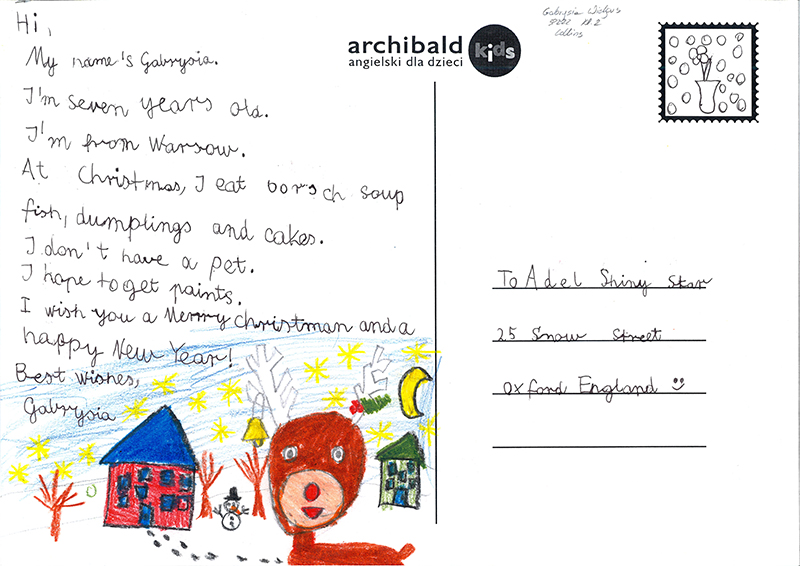 Hi,
My name's Gabrysia.
I'm seven years old.
I'm from Warsow.
At Christmas, I eat borsch soup
fish, dumplings and cakes.
I don't have a pet.
I hope to get paints.
I wish you a Merry Christman and a
happy New Year!
Best wishes,
Gabrysia
archibald kids
angielski dla dzieci
Gabrysia
To Adel Shiny Star
25 Snow Street
Oxford England